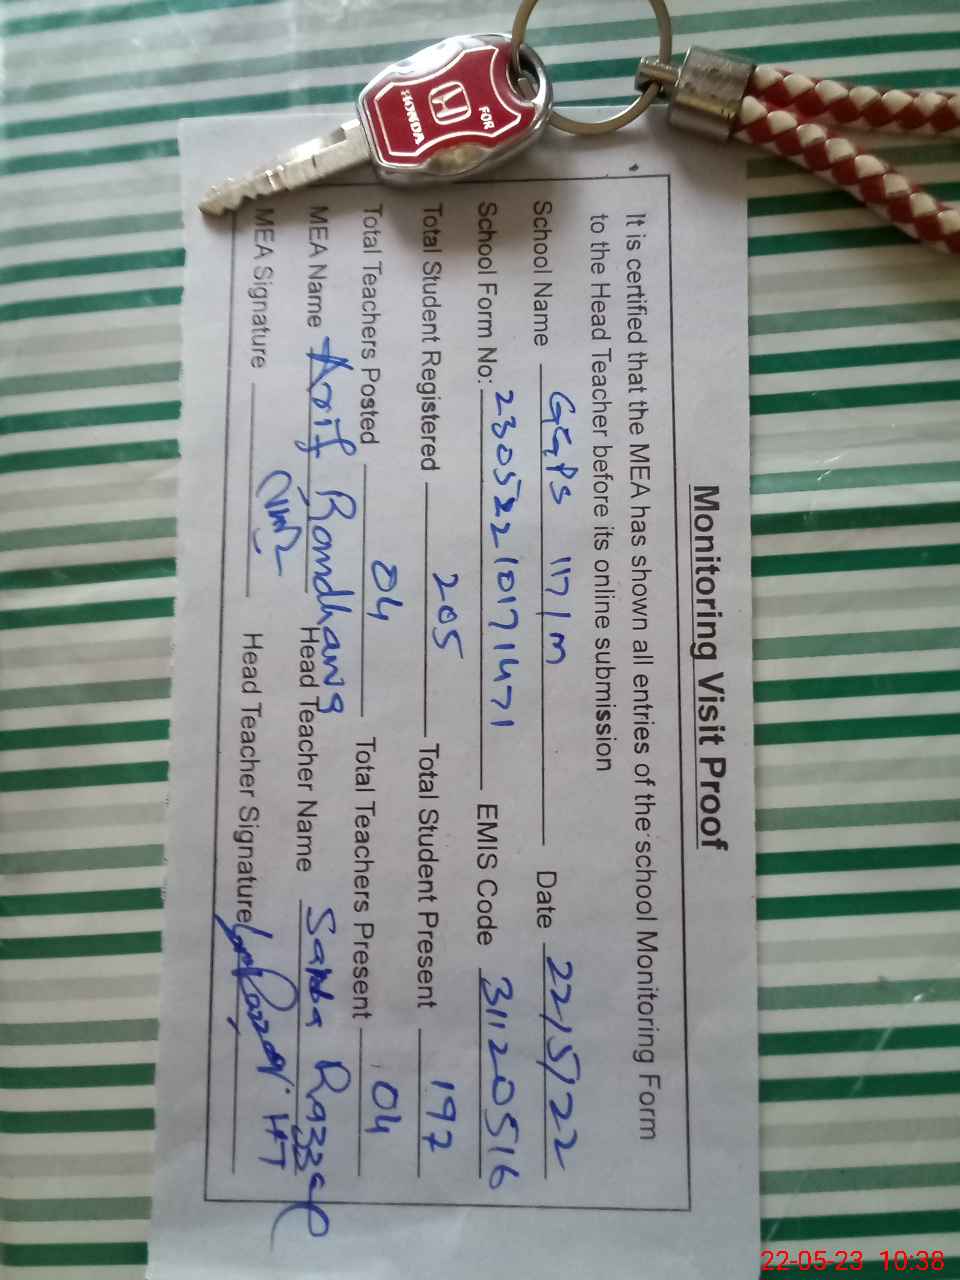 FOR
HONDA
Monitoring Visit Proof
It is certified that the MEA has shown all entries of the school Monitoring Form
to the Head Teacher before its online submission
School Name GGPS 117/m Date 22/5/22
School Form No: 230522101711471 EMIS Code 31120516
Total Student Registered 205 Total Student Present 197
Total Teachers Posted 04 Total Teachers Present 04
MEA Name Arif Head Teacher Name Samba Razzaq
MEA Signature Head Teacher Signature HT
22-05-23 10:38